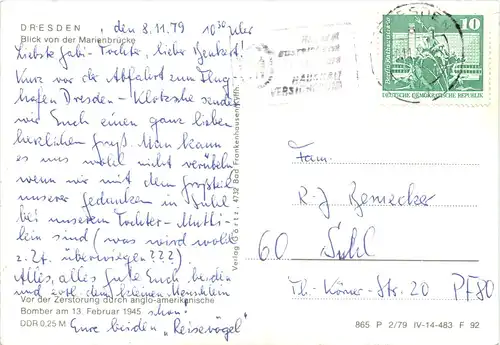 DRESDEN, den 8.11.79 10³⁰ Uhr
Blick von der Marienbrücke
Liebste Gabi-Tochter, lieber
Kurz vor der Abfahrt zum Flug-
hafen Dresden-Klotzsche senden
wir Euch einen ganz lieben
herzlichen Gruß. Man kann
es uns wohl nicht verübeln
wenn wir mit dem Großteil
unserer Gedanken in Suhl
bei unserem Tochter-Mutti-
lein sind (was wird wohl
z. Zt. überwiegen???)
Alles, alles Gute Euch beiden
und evtl. dem kleinen Menschlein
Vor der Zerstörung durch anglo-amerikanische
Bomber am 13. Februar 1945
schon!
DDR 0,25 M
Eure beiden "Reisevögel"
Verlag Görtz, 4732 Bad Frankenhausen/Kyffh.
HAUSHALT
VERSICHERUNG
10
DEUTSCHE DEMOKRATISCHE REPUBLIK
Fam.
R-J Bemecker
60 Suhl
Th.-Körner-Str. 20 PF80
865 P 2/79 IV-14-483 F 92